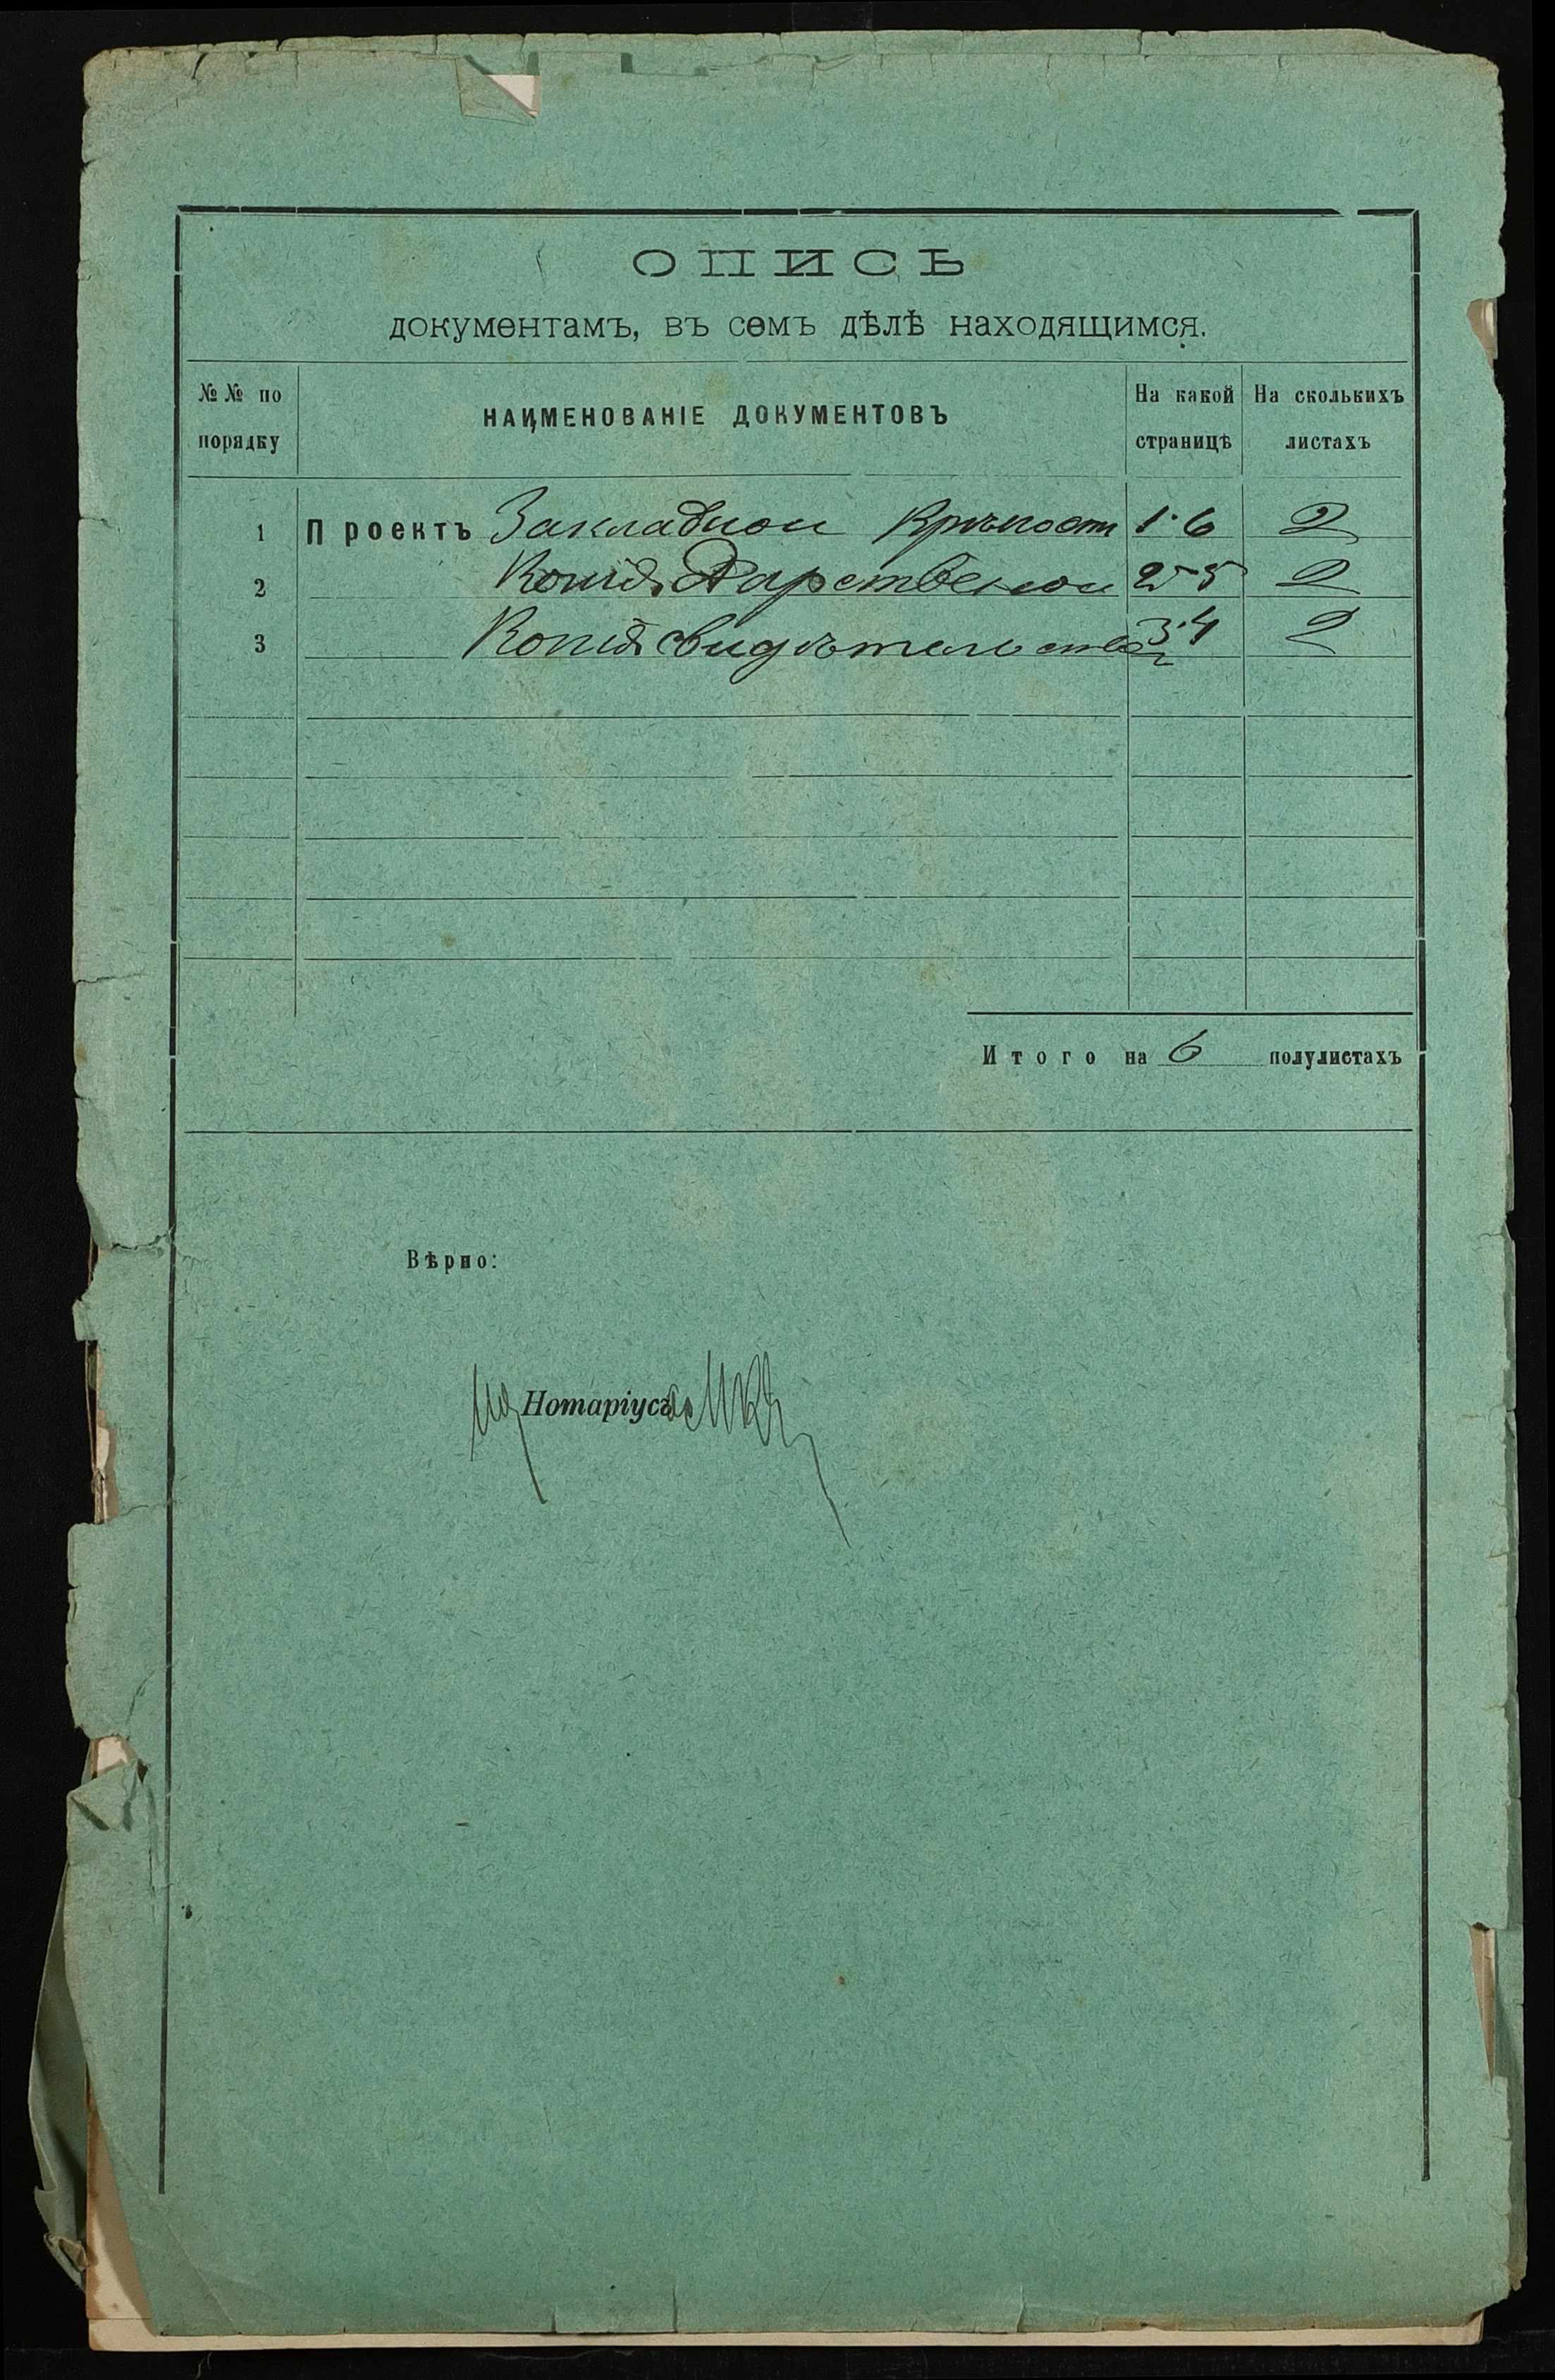 ОПИСЬ
документамъ, въ семъ дѣлѣ находящимся.
№№ по порядку
НАИМЕНОВАНІЕ ДОКУМЕНТОВЪ
На какой страницѣ
На сколькихъ листахъ
1 Проектъ Закладной Крѣпости 1·6 2
2 Копія Дарственной 2-5 2
3 Копія свидѣтельства 3·4 2
Итого на 6 полулистахъ
Вѣрно:
Нотаріусъ